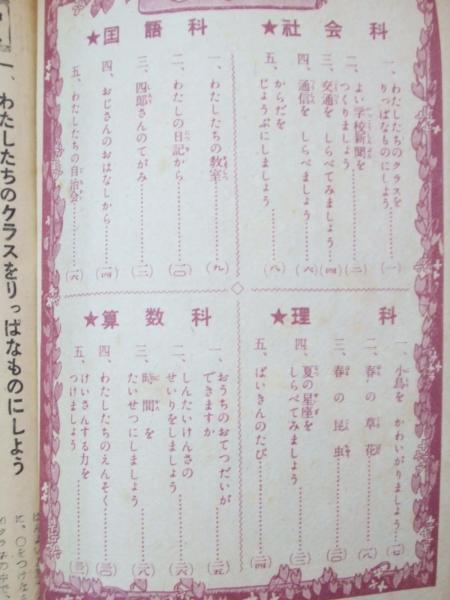 ★社会科
一、わたしたちのクラスを
りっぱなものにしよう……(一)
二、よい学校新聞を
つくりましょう……(二)
三、交通を しらべてみましょう…(四)
四、通信を しらべましょう……(六)
五、からだを
じょうぶにしましょう……(八)
★国語科
一、わたしたちの教室……(九)
二、わたしの日記から……(一〇)
三、四郎さんのてがみ……(一二)
四、おじさんのおはなしから……(一四)
五、わたしたちの自治会……(一六)
★理科
一、小鳥を かわいがりましょう…(一七)
二、春の草花……(一八)
三、春の昆虫……
四、夏の星座を
しらべてみましょう……
五、ばいきんのたび……(二四)
★算数科
一、おうちのおてつだいが
できますか……(二五)
二、しんたいけんさの
せいりをしましょう……(二六)
三、時間を
たいせつにしましょう……(二八)
四、わたしたちのえんそく……(三〇)
五、けいさんする力を
つけましょう……
一、わたしたちのクラスをりっぱなものにしよう